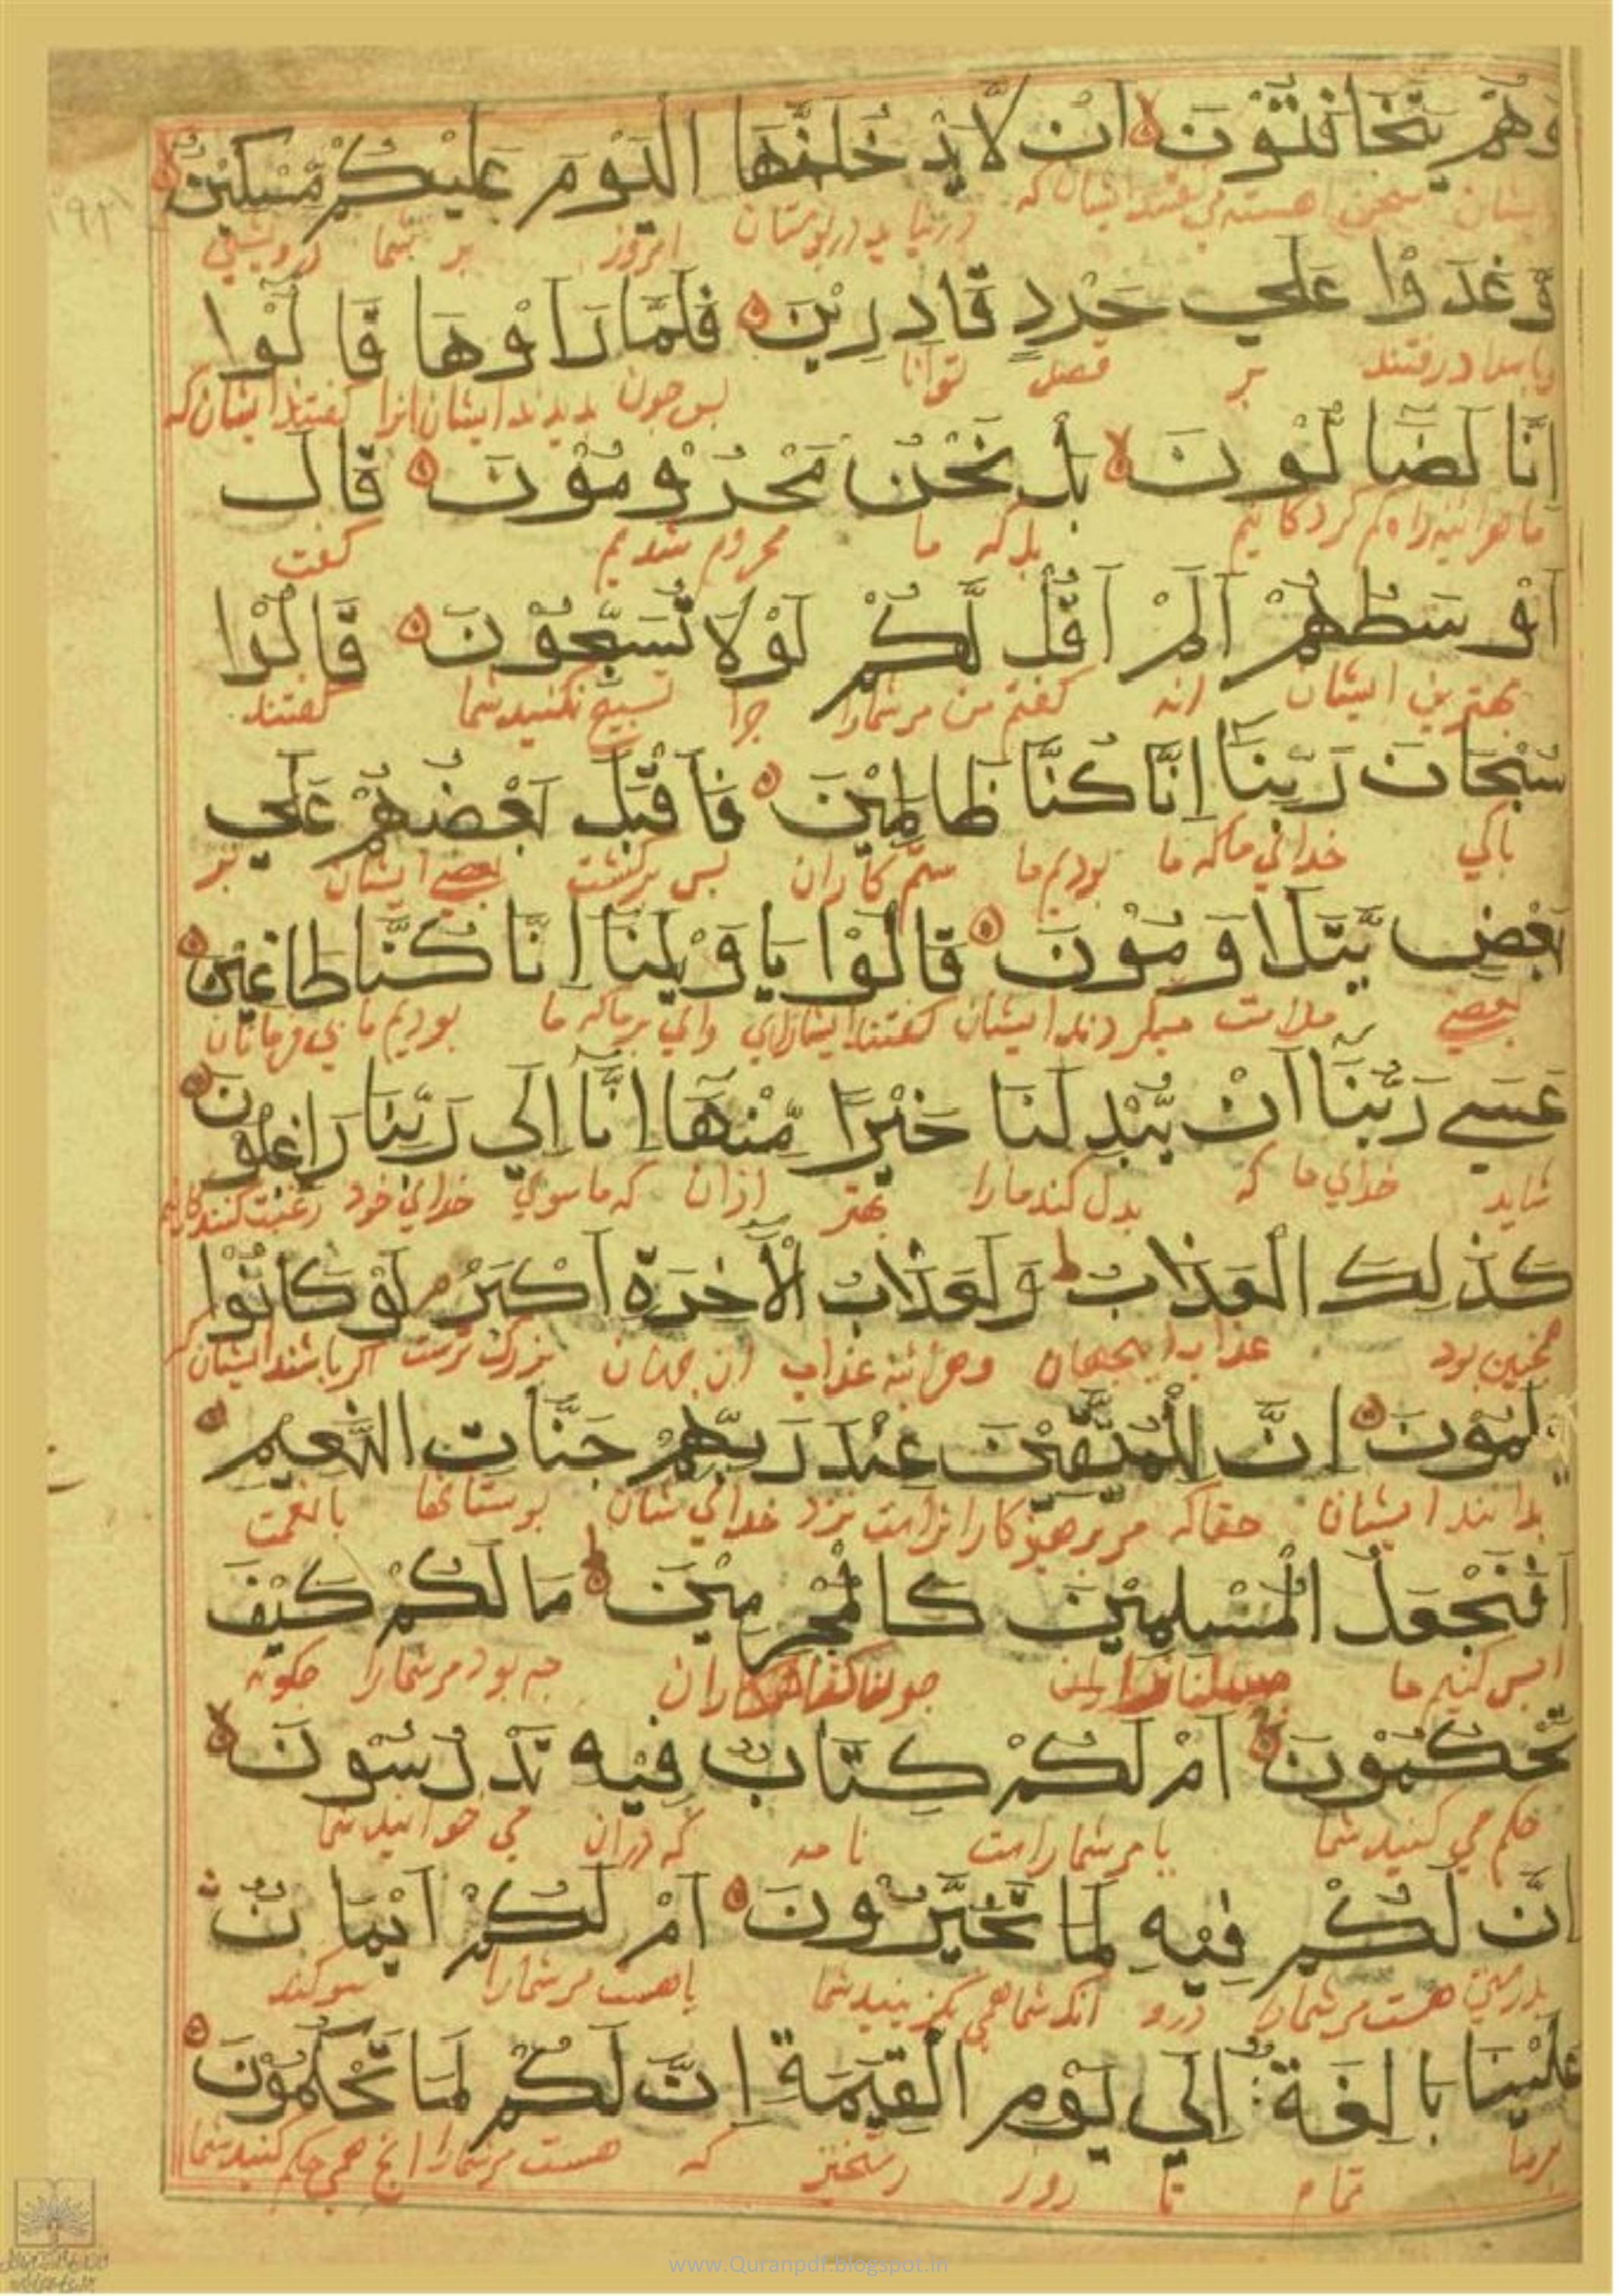 وَهُمْ يَتَخَافَتُوْنَ اَنْ لَّا يَدْخُلَنَّهَا الْيَوْمَ عَلَيْكُمْ مِّسْكِيْنٌ
ایشان سخن اهسته می گفتند ایشان که درنیاید در بوستان امروز بر شما درویشی
وَّغَدَوْا عَلٰي حَرْدٍ قَادِرِيْنَ فَلَمَّا رَاَوْهَا قَالُوْا
بامداد رفتند بر قصد توانا پس چون بدیدند ایشان انرا گفتند ایشان که
اِنَّا لَضَالُّوْنَ بَلْ نَحْنُ مَحْرُوْمُوْنَ قَالَ
ما هرائینه راه گم کردگانیم بل که ما محروم شدیم گفت
اَوْسَطُهُمْ اَلَمْ اَقُلْ لَّكُمْ لَوْلَا تُسَبِّحُوْنَ قَالُوْا
بهترین ایشان انه گفتم من مر شمارا چرا تسبیح نکنید شما گفتند
سُبْحَانَ رَبِّنَا اِنَّا كُنَّا ظَالِمِيْنَ فَاَقْبَلَ بَعْضُهُمْ عَلٰي
پاکی خدائی ما که ما بودیم ما ستم کاران پس برگشت بعضی ایشان بر
بَعْضٍ يَّتَلَاوَمُوْنَ قَالُوْا يَا وَيْلَنَا اِنَّا كُنَّا طَاغِيْنَ
بعضی ملامت میکردند ایشان گفتند ایشان ای وای بر ما که ما بودیم ما بی فرمانان
عَسٰے رَبُّنَا اَنْ يُّبْدِلَنَا خَيْرًا مِّنْهَا اِنَّا اِلٰي رَبِّنَا رَاغِبُوْنَ
شاید خدای ما که بدل کند ما را بهتر ازان که ما سوی خدائی خود رغبت کنندگانیم
كَذٰلِكَ الْعَذَابُ وَلَعَذَابُ الْاٰخِرَةِ اَكْبَرُ لَوْ كَانُوْا
همچنین بود عذاب اینجهان وهرائینه عذاب ان جهان بزرگ ترست اگر باشند ایشان که
يَعْلَمُوْنَ اِنَّ لِلْمُتَّقِيْنَ عِنْدَ رَبِّهِمْ جَنَّاتِ النَّعِيْمِ
بدانند ایشان حقا که مر پرهیزکارانراست نزد خدائی شان بوستانها با نعمت
اَفَنَجْعَلُ الْمُسْلِمِيْنَ كَالْمُجْرِمِيْنَ مَا لَكُمْ كَيْفَ
ایس کنیم ما مسلمانانرا چون گناهکاران چه بود مر شمارا چگونه
تَحْكُمُوْنَ اَمْ لَكُمْ كِتَابٌ فِيْهِ تَدْرُسُوْنَ
حکم می کنید شما یا مر شماراست نامه که دران می خوانید شما
اِنَّ لَكُمْ فِيْهِ لَمَا تَخَيَّرُوْنَ اَمْ لَكُمْ اَيْمَانٌ
بدرستی هست مر شمارا درو انکه شما همی بگزینید شما یا هست مر شمارا سوگند
عَلَيْنَا بَالِغَةٌ اِلٰي يَوْمِ الْقِيٰمَةِ اِنَّ لَكُمْ لَمَا تَحْكُمُوْنَ
بر ما تمام تا روز رستخیز که هست مر شمارا انچ همی حکم کنید شما
www.Quranpdf.blogspot.in